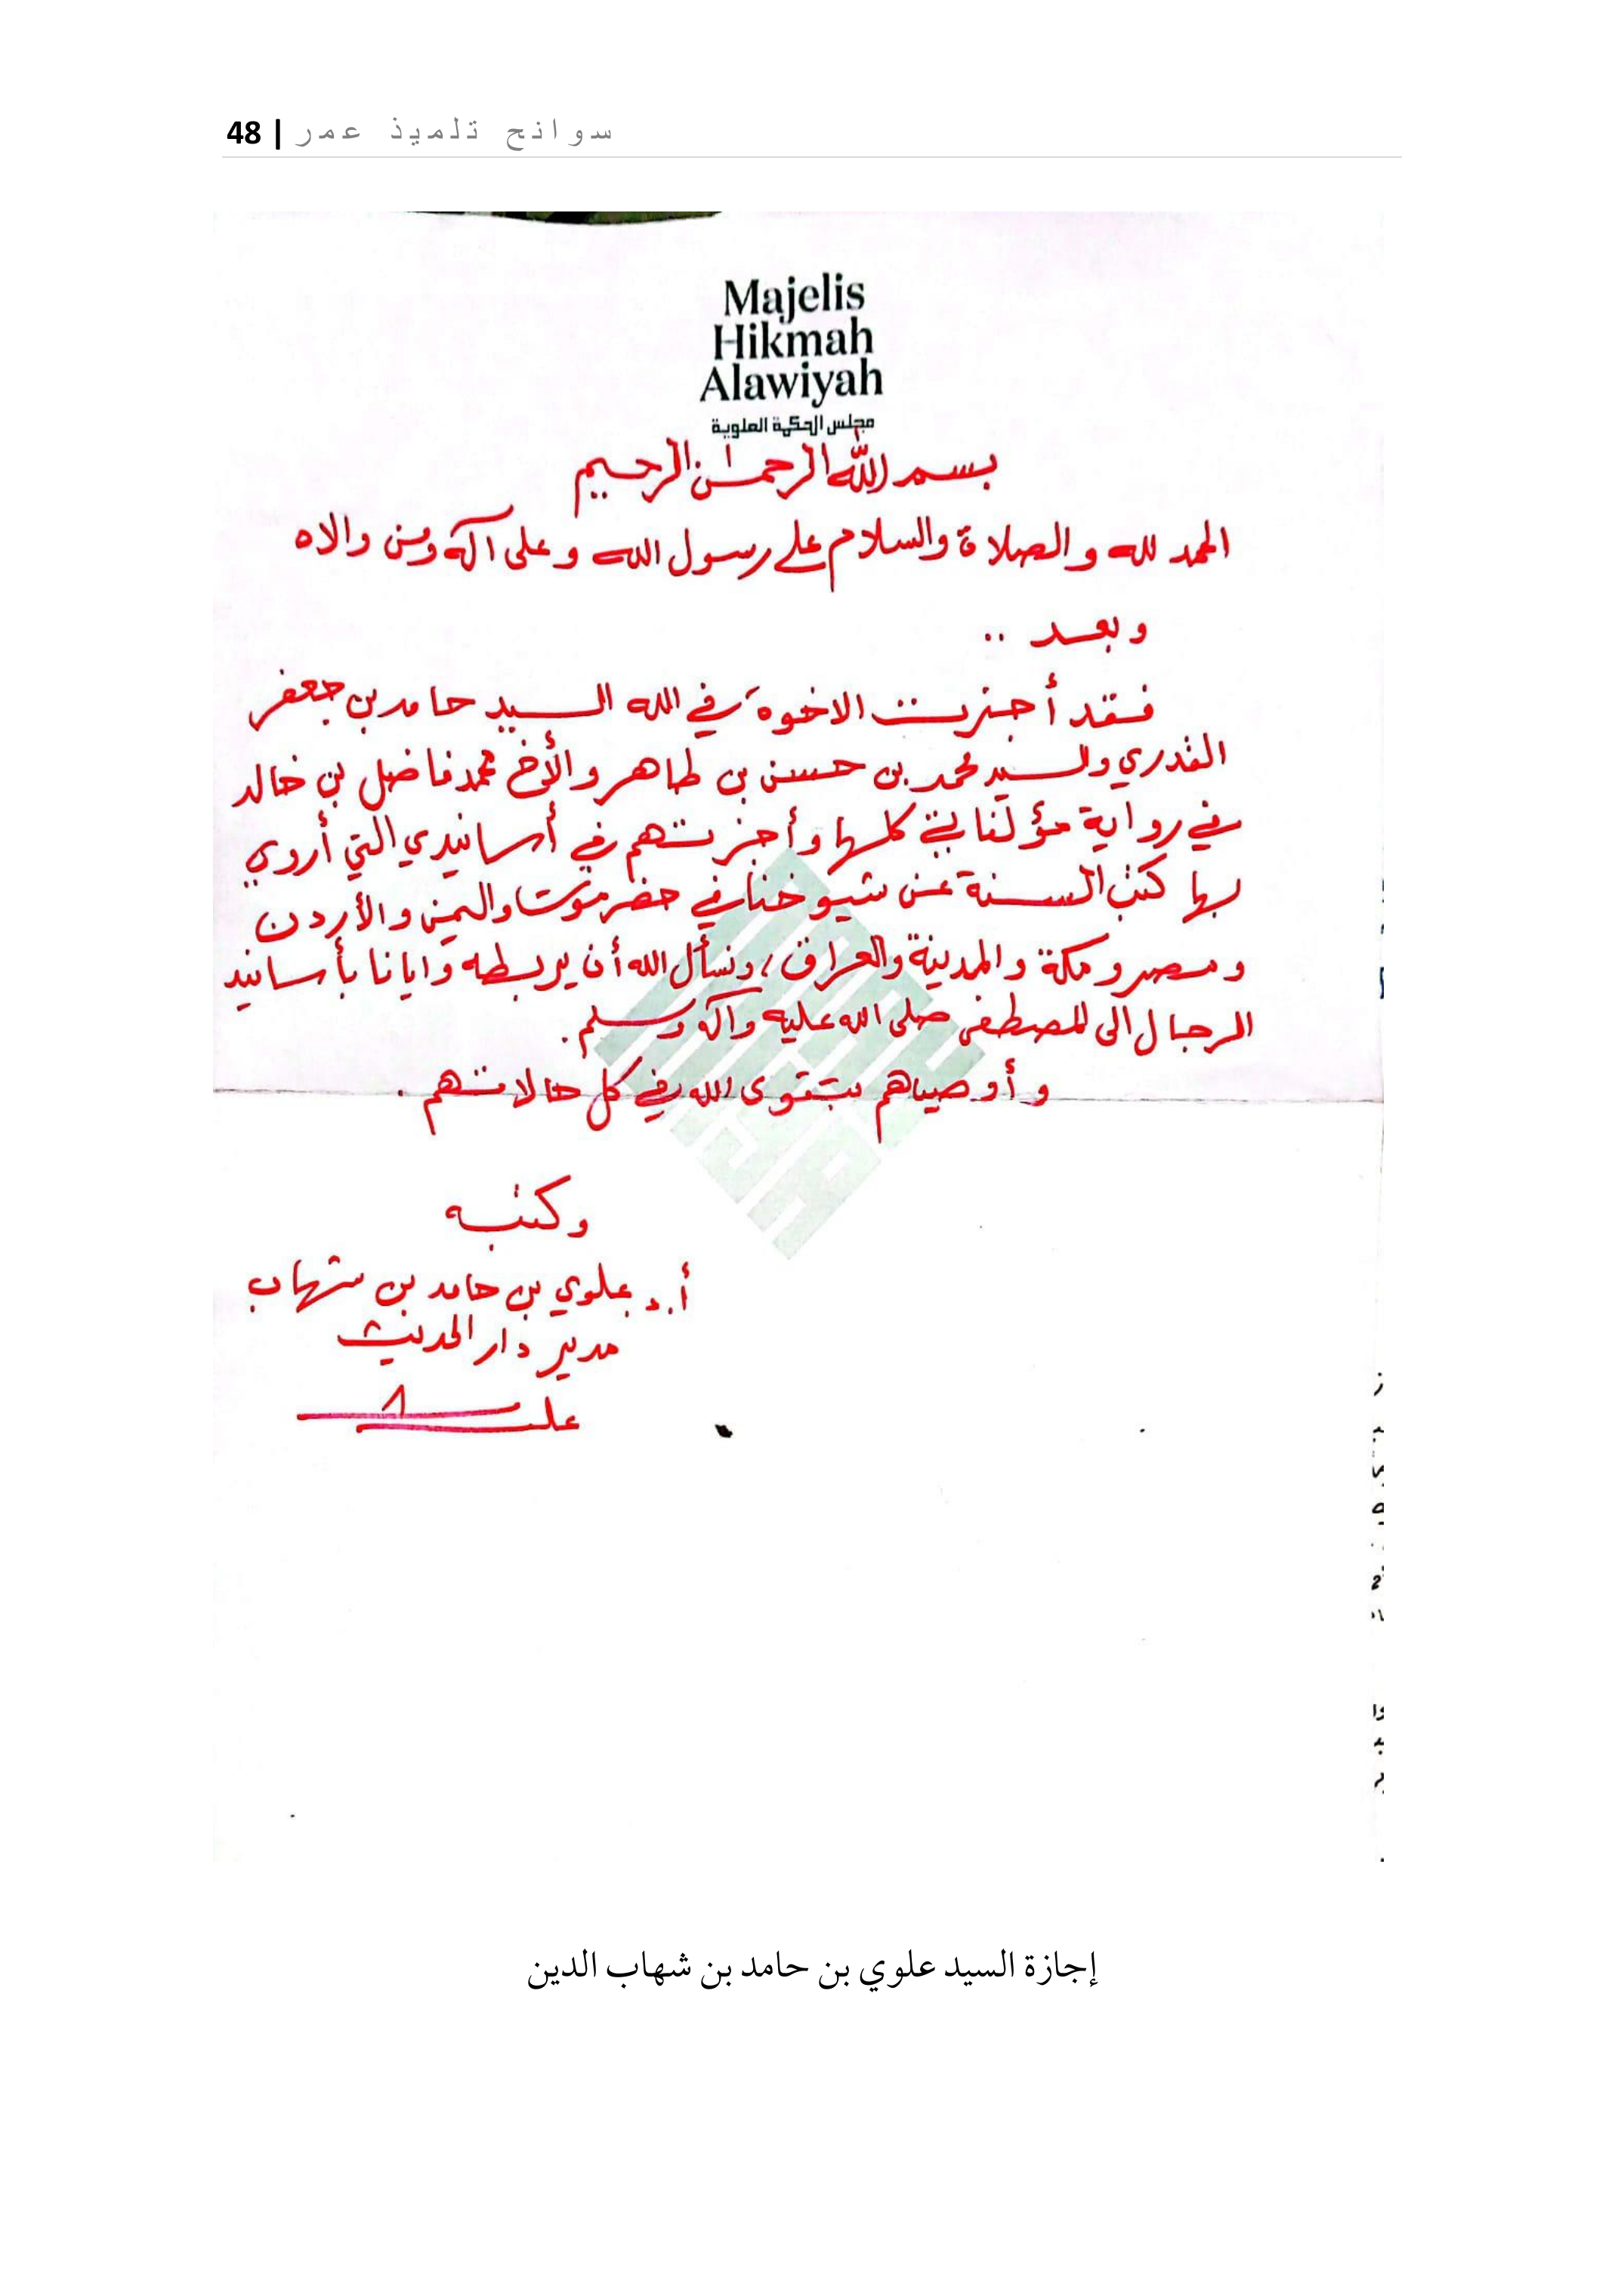 48 | سوانح تلميذ عمر
Majelis
Hikmah
Alawiyah
مجلس الحكمة العلوية
بسم الله الرحمن الرحيم
الحمد لله والصلاة والسلام على رسول الله وعلى آله ومن والاه
وبعد ..
فقد أجزت الاخوة في الله السيد حامد بن جعفر
القدري والسيد محمد بن حسن بن طاهر والأخ محمد فاضل بن خالد
في رواية مؤلفاتي كلها وأجزتهم في أسانيدي التي أروي
بها كتب السنة عن شيوخنا في حضرموت واليمن والأردن
ومصر ومكة والمدينة والعراق، ونسأل الله أن يربطه وايانا بأسانيد
الرجال الى المصطفى صلى الله عليه وآله وسلم.
و أوصيهم بتقوى الله في كل حالاتهم .
وكتبه
أ.د. علوي بن حامد بن شهاب
مدير دار الحديث
إجازة السيد علوي بن حامد بن شهاب الدين